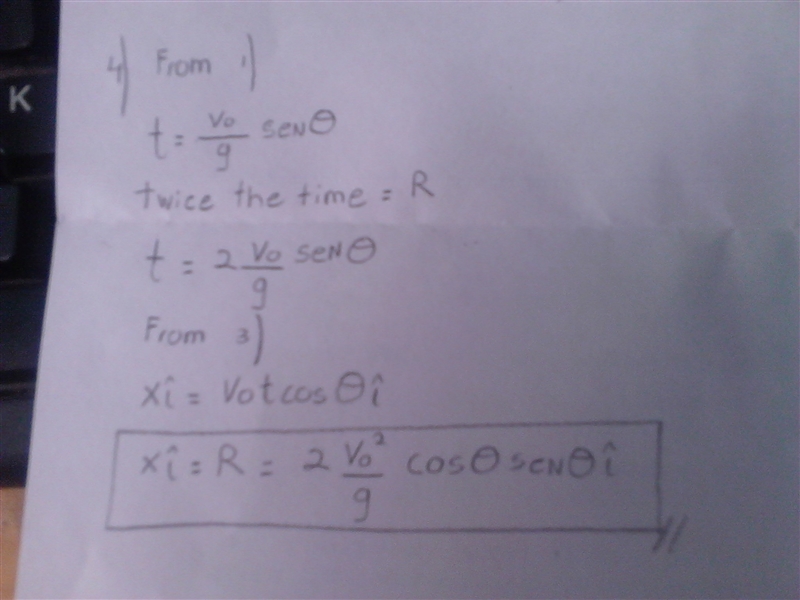 K
4) From 1)
t = v₀/g senθ
twice the time = R
t = 2 v₀/g senθ
From 3)
xî = v₀tcosθî
xî = R = 2 v₀²/g cosθsenθî